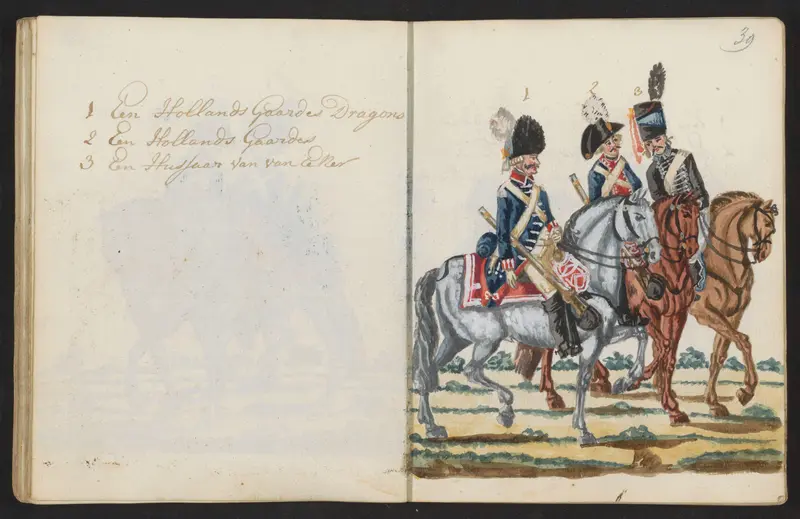 1 Een Hollands Gaardes Dragons
2 Een Hollands Gaardes
3 Een Hussaar van van Eker
39
1 2 3